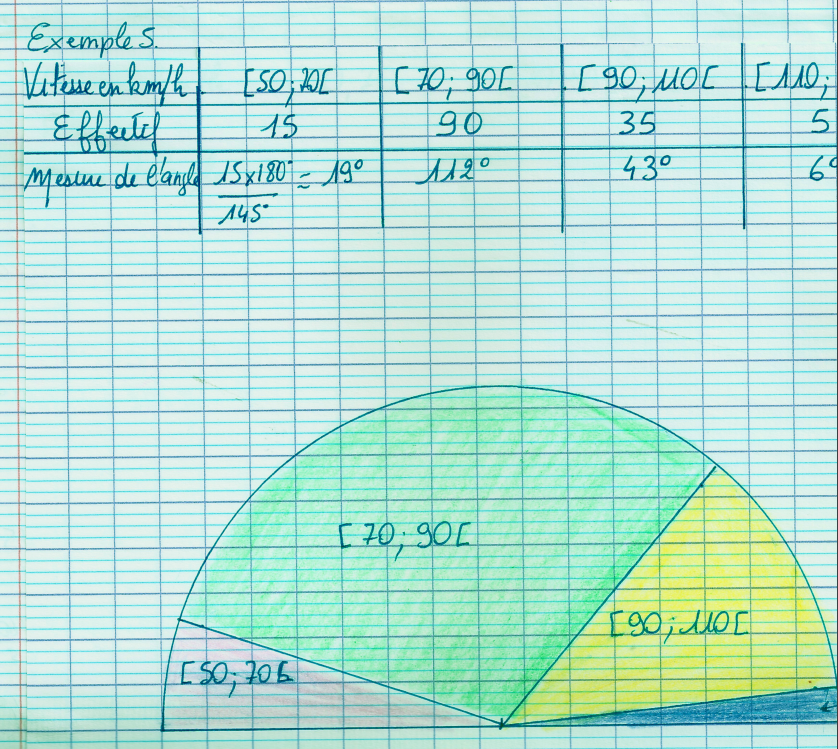 Exemple 5.
Vitesse en km/h [50;70[ [70;90[ [90;110[ [110;
Effectif 15 90 35 5
Mesure de l'angle 15x180° ≈ 19° 112° 43° 6°
145°
[70;90[
[90;110[
[50;70[